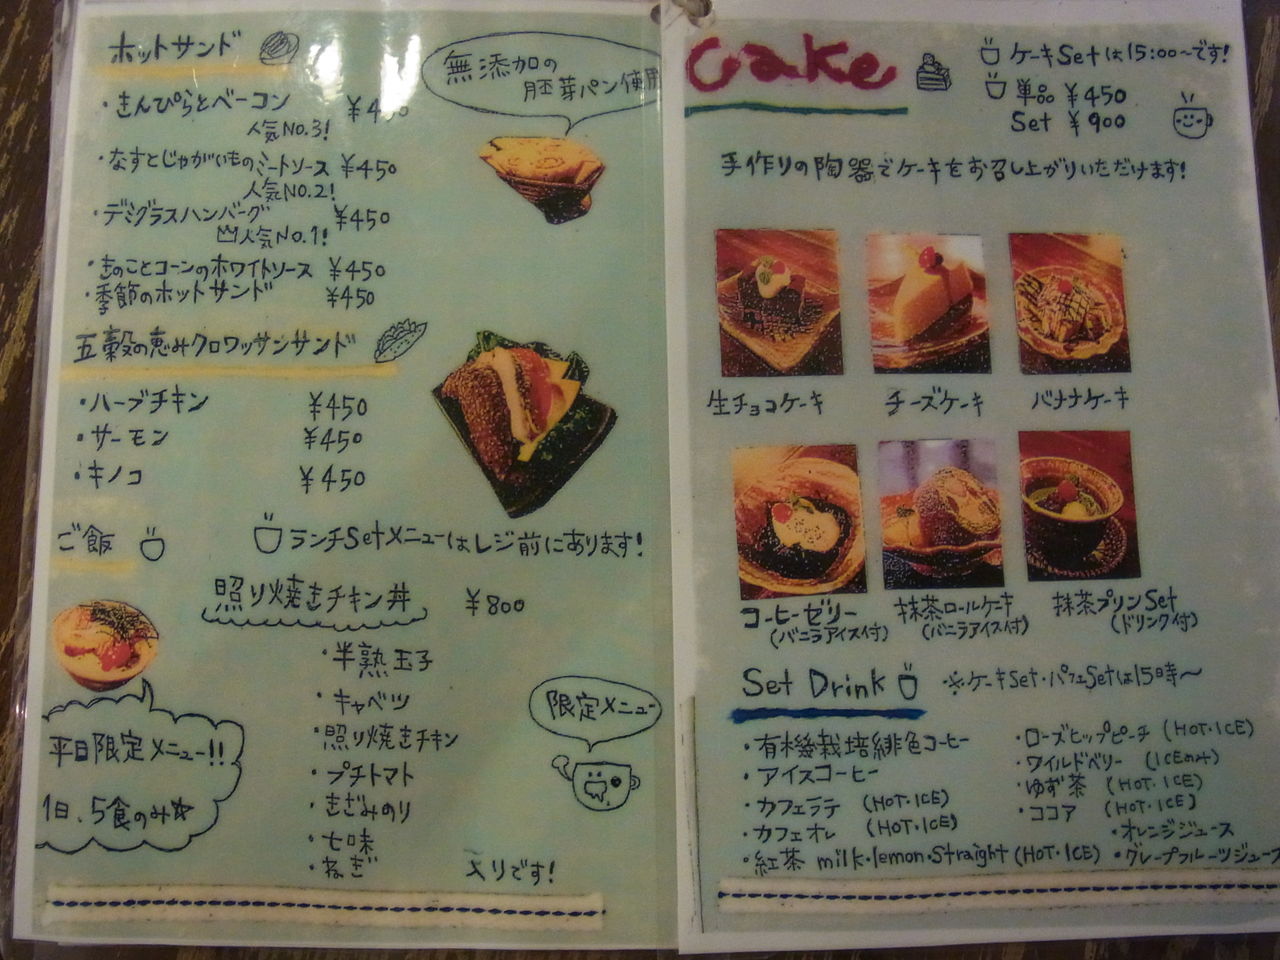 ホットサンド
無添加の
胚芽パン使用
・きんぴらとベーコン ¥450
人気No.3!
・なすとじゃがいものミートソース ¥450
人気No.2!
・デミグラスハンバーグ ¥450
人気No.1!
・きのことコーンのホワイトソース ¥450
・季節のホットサンド ¥450
五穀の恵みクロワッサンサンド
・ハーブチキン ¥450
・サーモン ¥450
・キノコ ¥450
ご飯
ランチSetメニューはレジ前にあります!
照り焼きチキン丼 ¥800
・半熟玉子
・キャベツ
・照り焼きチキン
・プチトマト
・きざみのり
・七味
・ねぎ
入りです!
平日限定メニュー!!
1日、5食のみ☆
限定メニュー
Cake
ケーキSetは15:00〜です!
単品 ¥450
Set ¥900
手作りの陶器でケーキをお召し上がりいただけます!
生チョコケーキ
チーズケーキ
バナナケーキ
コーヒーゼリー
(バニラアイス付)
抹茶ロールケーキ
(バニラアイス付)
抹茶プリンSet
(ドリンク付)
Set Drink
※ケーキSet・パフェSetは15時〜
・有機栽培緋色コーヒー
・アイスコーヒー
・カフェラテ (HOT・ICE)
・カフェオレ (HOT・ICE)
・紅茶 milk・lemon・Straight (HOT・ICE)
・ローズヒップピーチ (HOT・ICE)
・ワイルドベリー (ICEのみ)
・ゆず茶 (HOT・ICE)
・ココア (HOT・ICE)
・オレンジジュース
・グレープフルーツジュース